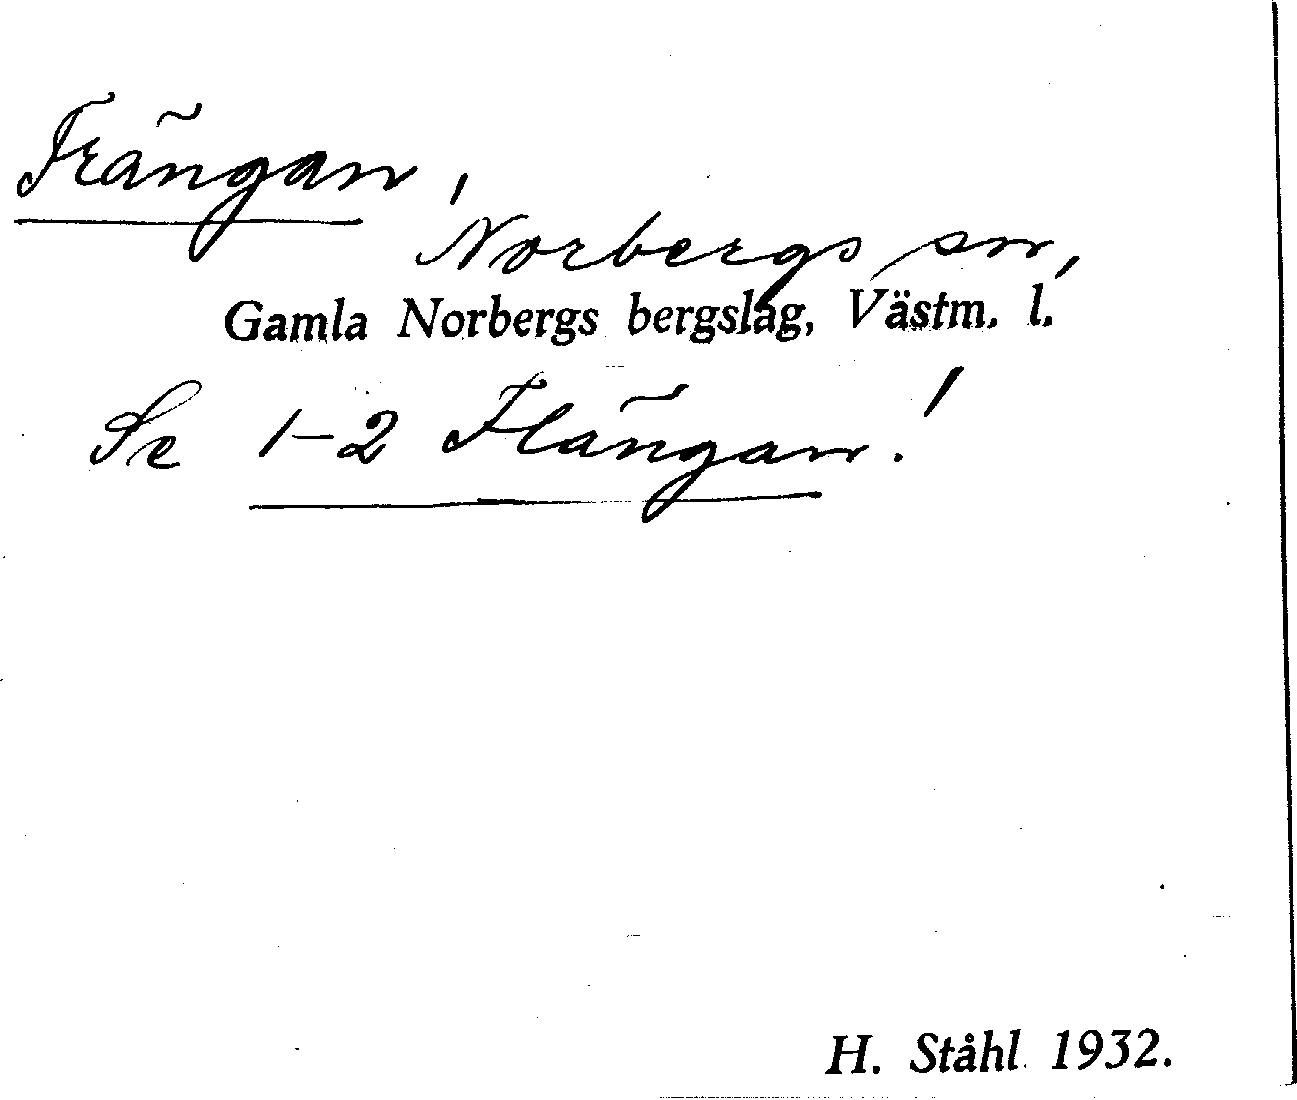 Frängan,
Norbergs sn,
Gamla Norbergs bergslag, Västm. l.
Se 1-2 Flängan!
H. Ståhl 1932.